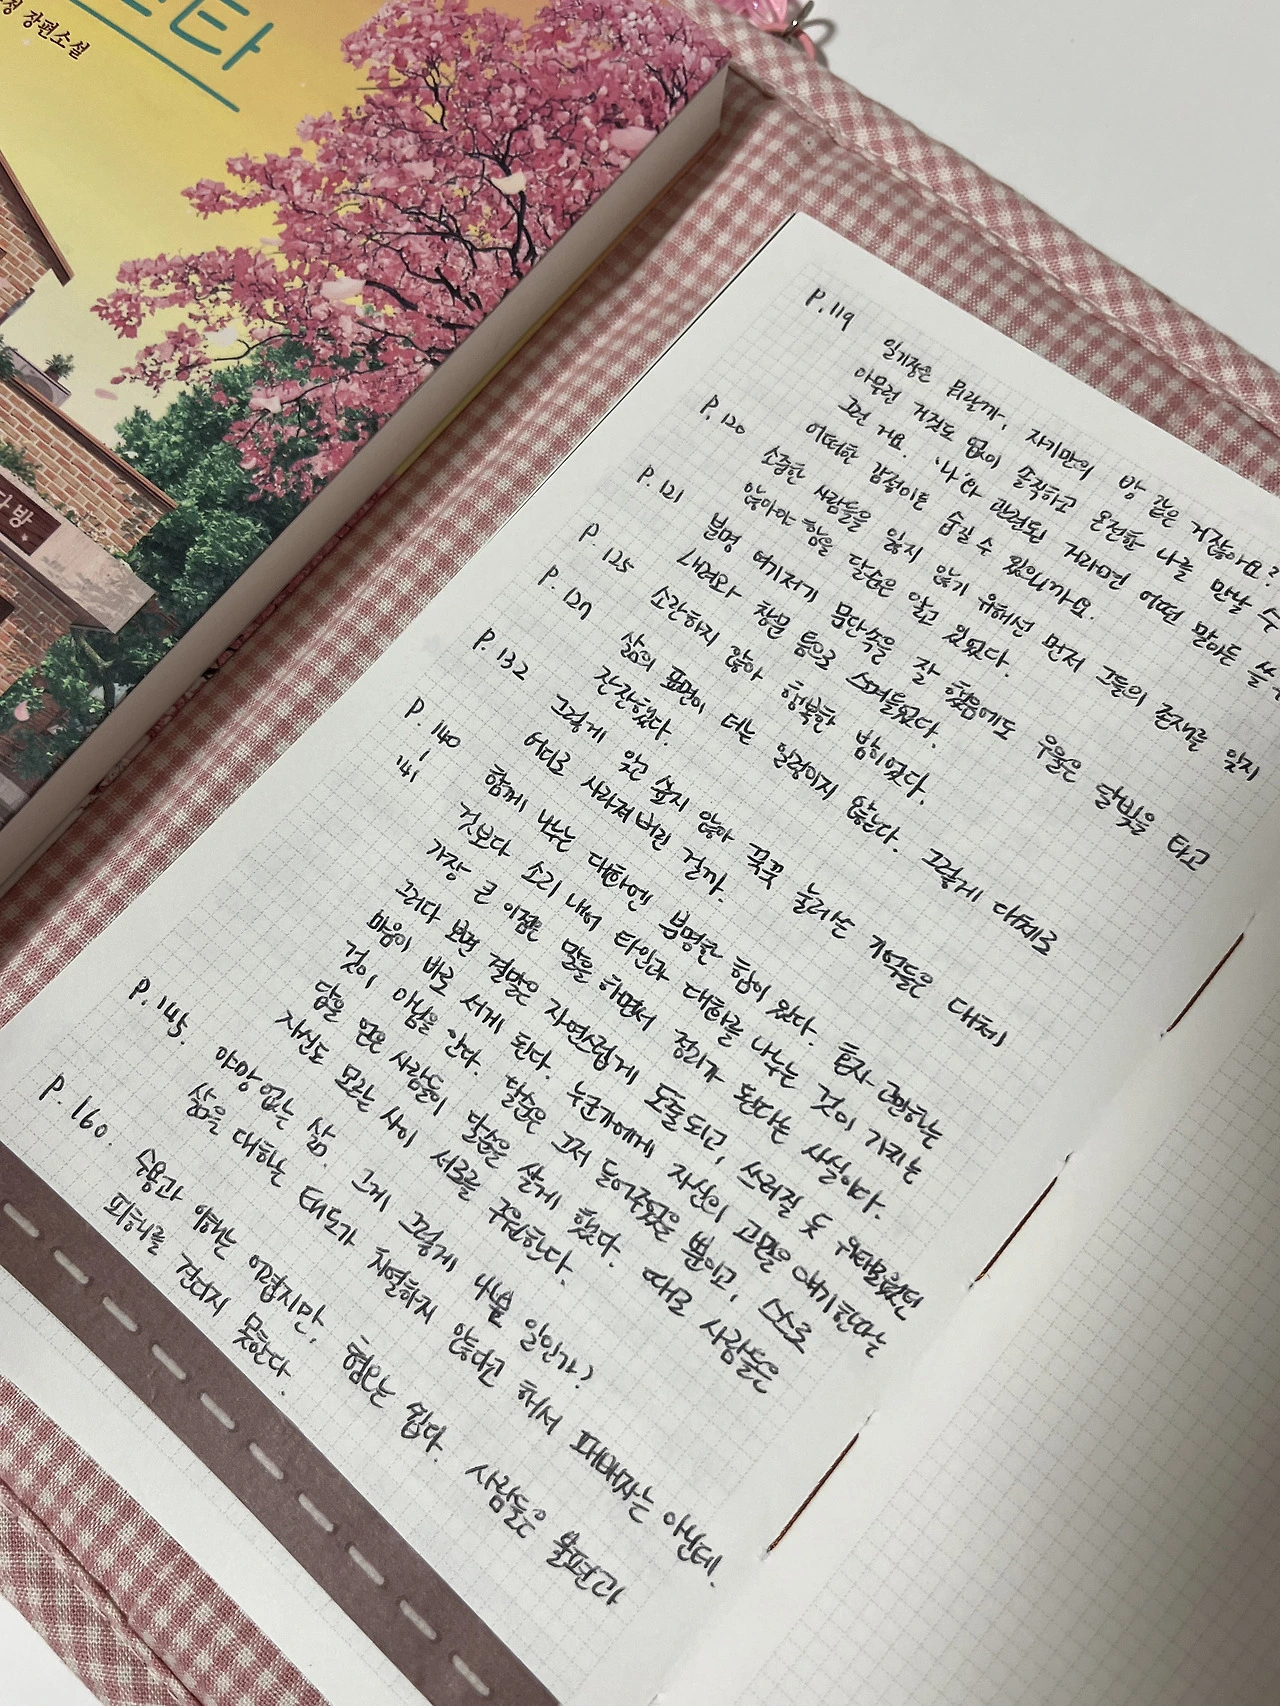 스타
장편소설
다방
P.119 일기장은 뭐랄까, 자기만의 방 같은 거잖아요?
아무런 거짓도 없이 솔직하고 온전한 나를 만날 수
그런 거요. '나'와 관련된 거라면 어떤 말이든 쓸 수
어떠한 감정이든 숨길 수 있으니까요.
P.120 소중한 사람들을 잃지 않기 위해선 먼저 그들의 존재를 잊지
않아야 함을 달슬은 알고 있었다.
P.121 분명 여기저기 문단속을 잘 했음에도 우울은 달빛을 타고
내려와 창문 틈으로 스며들었다.
P.125 소란하지 않아 행복한 밤이었다.
P.127 삶의 표면이 더는 일렁이지 않는다. 그렇게 대체로
잔잔했다.
P.132 그렇게 잊고 싶지 않아 꾹꾹 눌러쓴 기억들은 대체
어디로 사라져버린 걸까.
P.140 함께 나누는 대화엔 분명한 힘이 있다. 혼자 고민하는
141 것보다 소리 내어 타인과 대화를 나누는 것이 가지는
가장 큰 이점은 말을 하면서 정리가 된다는 사실이다.
그러다 보면 결말은 자연스럽게 도출되고, 쓰러질 듯 위태로웠던
마음이 바로 서게 된다. 누군가에게 자신의 고민을 얘기한다는
것이 아님을 안다. 달슬은 그저 들어주었을 뿐이고, 스스로
답을 얻은 사람들이 달슬을 살게 했다. 때로 사람들은
자신도 모르는 사이 서로를 구원한다.
P.145. 야망 없는 삶. 그게 그렇게 나쁠 일인가?
삶을 대하는 태도가 치열하지 않다고 해서 패배자는 아닌데.
P.160. 수용과 이해는 어렵지만, 혐오는 쉽다. 사람들은 불편과
피해를 견디지 못한다.